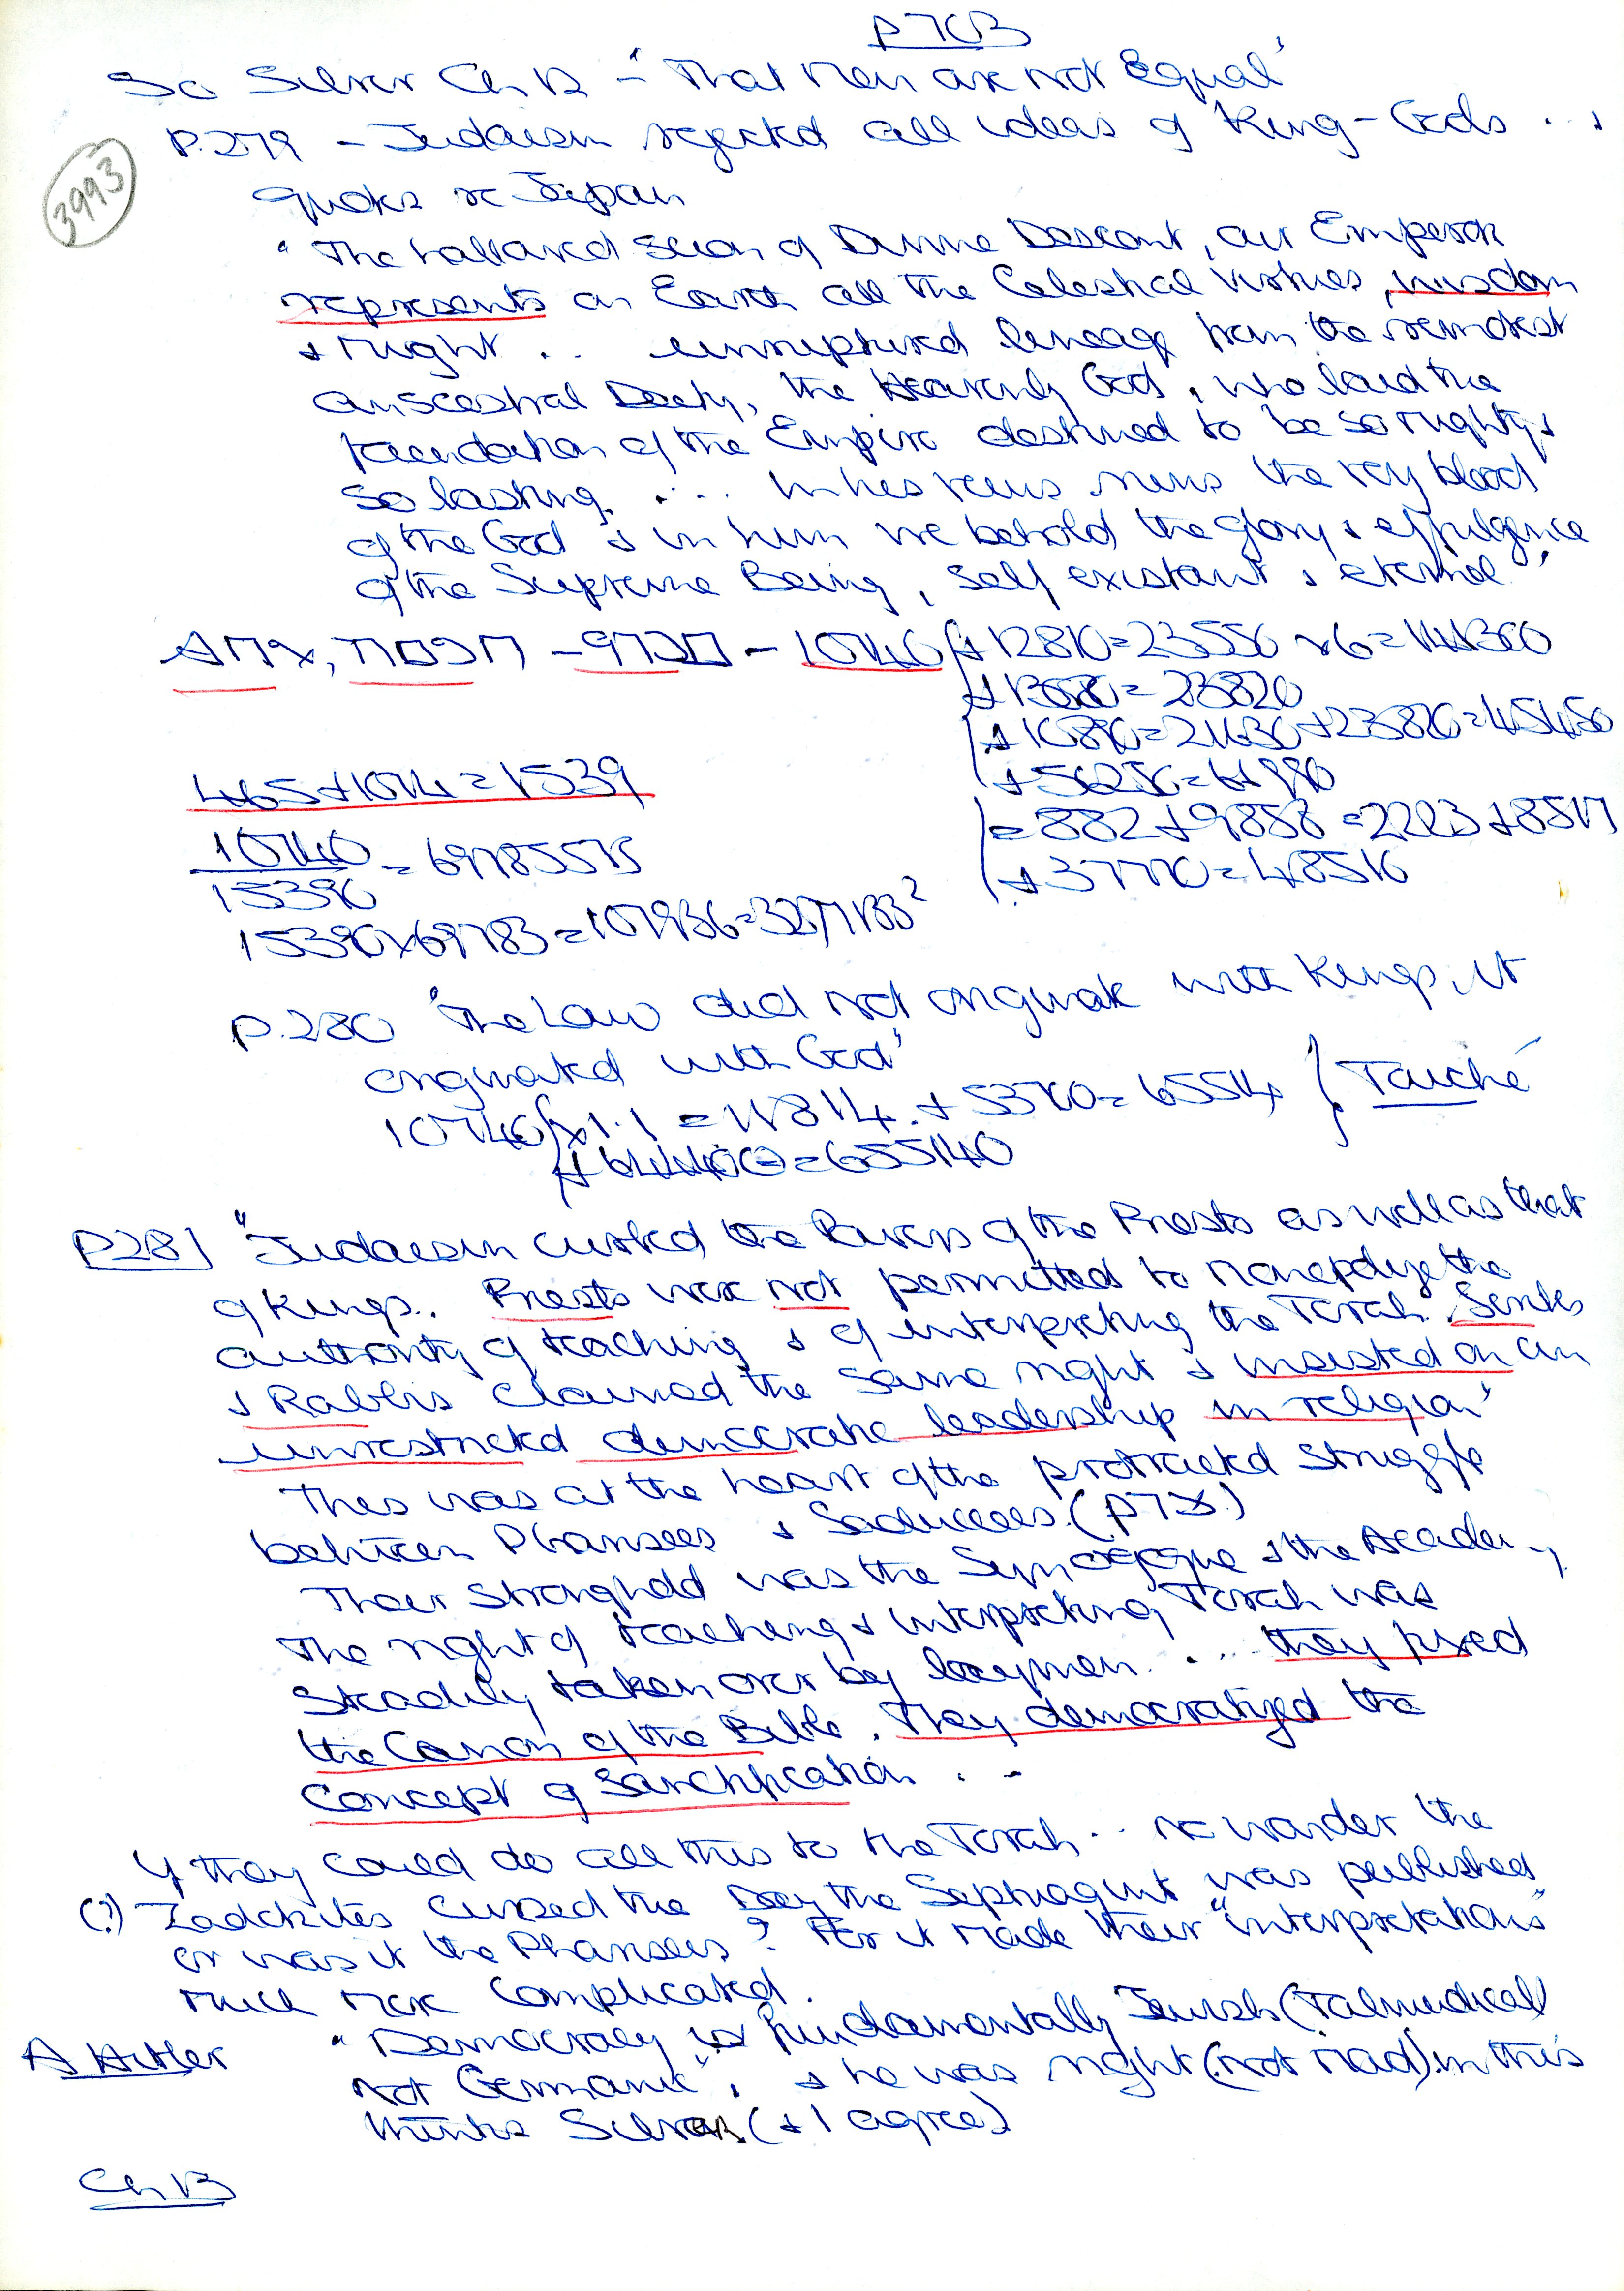 So Silver Ch 12 - 'That Men are not Equal'
P.279 - Judaism rejected all ideas of King-Gods ...
3993
quotes re Japan
"The hallowed scion of Divine Descent, our Emperor
represents on Earth all the Celestial Virtues, wisdom
& might .. unruptured lineage from the remotest
anscestral Deity, the Heavenly God, who laid the
foundation of the Empire destined to be so mighty &
so lasting. ... In his veins runs the very blood
of the God & in him we behold the glory & effulgence
of the Supreme Being, self existant & eternal"
10740 + 12810 = 23550 x 6 = 141300
= 23820
+ 10890 = 21630 + 23820 = 45450
+ 56250 = 66990
465 + 1074 = 1539
= 882 + 9858 = 2223 + 8517
10740 = 69785575
+ 37770 = 48510
15390
P.280 "The Law did not originate with Kings, it
originated with God"
10740 x 1.1 = 11814 + 53700 = 65514 } Touché
+ 644400 = 655140
P281 "Judaism curbed the Powers of the Priests as well as that
of Kings. Priests were not permitted to monopolize the
authority of teaching & of interpreting the Torah. Scribes
& Rabbis claimed the same right & insisted on an
unrestricted democratic leadership in religion"
This was at the heart of the protracted struggle
between Pharisees & Saducees.
Their stronghold was the Synagogue & the Academy.
The right of teaching & interpreting Torah was
steadily taken over by laymen. ... they fixed
the Canon of the Bible. They democratized the
Concept of Sanctification ..
If they could do all this to the Torah .. no wonder the
(?) Zadokites cursed the Day the Septuagint was published
or was it the Pharisees? For it made their "interpretations"
much more complicated.
A Hitler "Democracy is fundamentally Jewish (Talmudical)
not Germanic". & he was right (not mad) in this
thinks Silver. (& I agree)
Ch 13